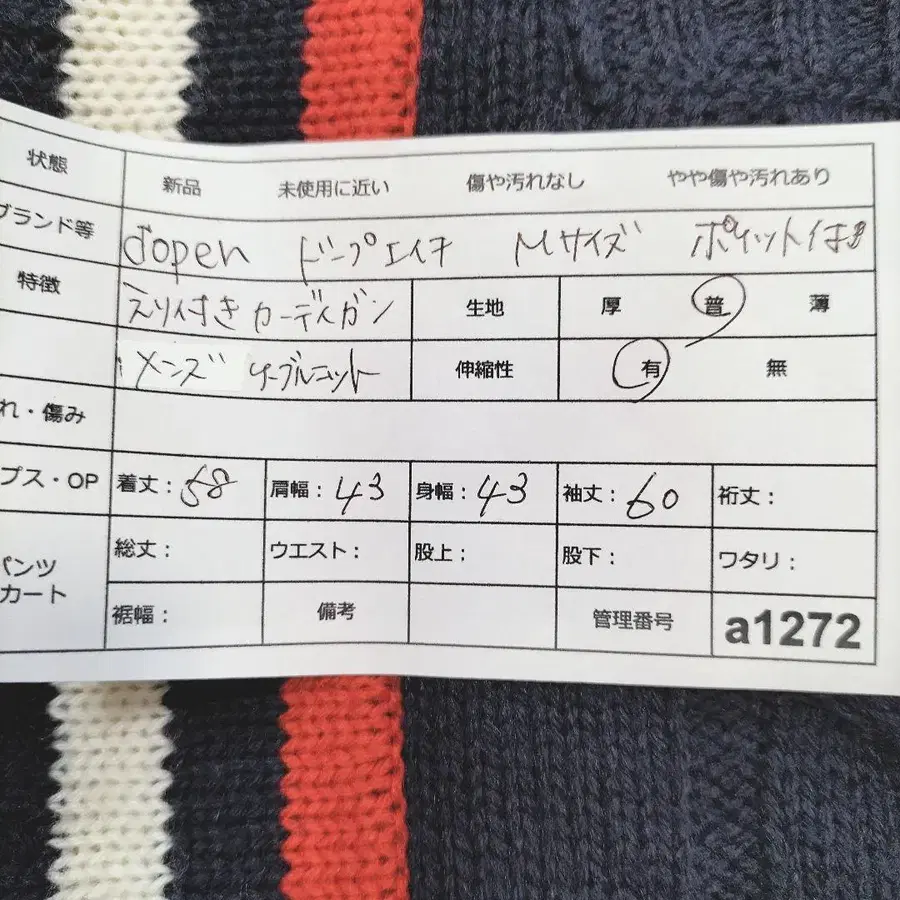 状態 新品 未使用に近い 傷や汚れなし やや傷や汚れあり
ブランド等 dopen ドープエイチ Mサイズ
特徴 えり付き カーディガン 生地 厚 普 薄
メンズ ケーブルニット 伸縮性 有 無
れ・傷み
プス・OP 着丈:58 肩幅:43 身幅:43 袖丈:60 裄丈:
パンツ 総丈: ウエスト: 股上: 股下: ワタリ:
カート
裾幅: 備考 管理番号 a1272